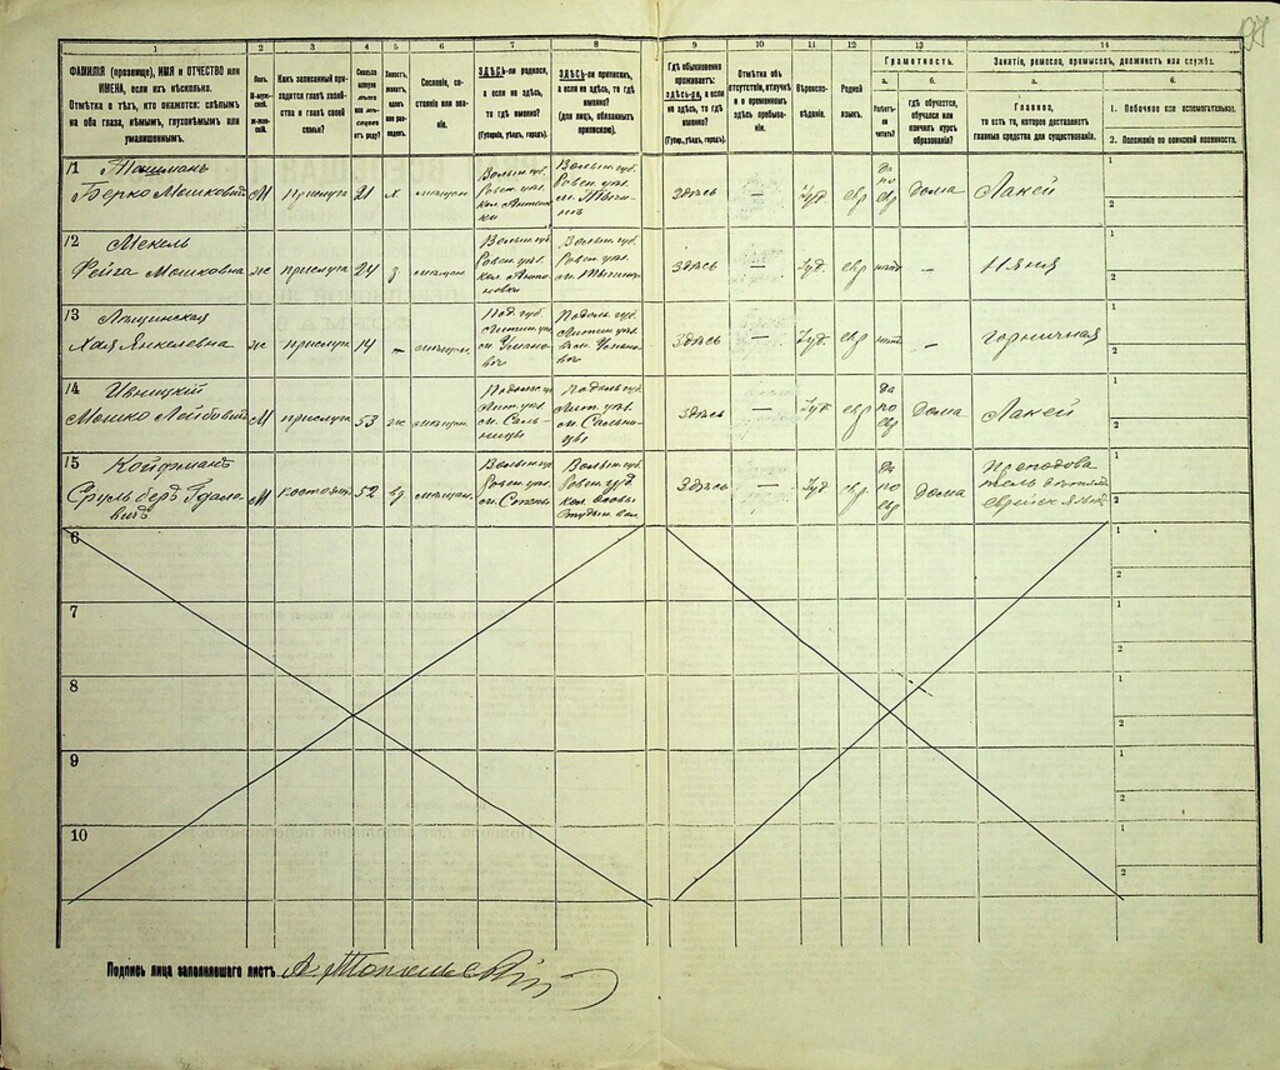 1
2
3
4
5
6
7
8
9
10
11
12
13
14
ФАМИЛІЯ (прозвище), ИМЯ и ОТЧЕСТВО или
ИМЕНА, если ихъ нѣсколько.
Отмѣтка о тѣхъ, кто окажется: слѣпымъ
на оба глаза, нѣмымъ, глухонѣмымъ или
умалишеннымъ.
Полъ.
М-муж-
ской.
Ж-жен-
скій.
Какъ записанный при-
ходится главѣ хозяй-
ства и главѣ своей
семьи?
Сколько
минуло
лѣтъ
или мѣ-
сяцевъ
отъ роду?
Холостъ,
женатъ,
вдовъ
или раз-
веденъ.
Сословіе, со-
стояніе или зва-
ніе.
ЗДѢСЬ-ли родился,
а если не здѣсь,
то гдѣ именно?
(Губернія, уѣздъ, городъ).
ЗДѢСЬ-ли приписанъ,
а если не здѣсь, то гдѣ
именно?
(для лицъ, обязанныхъ
припискою).
Гдѣ обыкновенно
проживаетъ:
здѣсь-ли, а если
не здѣсь, то гдѣ
именно?
(Губер., уѣздъ, городъ).
Отмѣтка объ
отсутствіи, отлучкѣ
и о временномъ
здѣсь пребыва-
ніи.
Вѣроиспо-
вѣданіе.
Родной
языкъ.
Грамотность.
а.
Умѣетъ-
ли
читать?
б.
гдѣ обучается,
обучался или
кончилъ курсъ
образованія?
Занятіе, ремесло, промыселъ, должность или служба.
а.
Главное,
то есть то, которое доставляетъ
главныя средства для существованія.
б.
1. Побочное или вспомогательное.
2. Положеніе по воинской повинности.
11
Берко Мошковичъ
М
прислуга
21
х.
мѣщан.
Волын. губ.
Ровен. уѣз.
Волын. губ.
Ровен. уѣз.
Здѣсь
—
Іуд.
евр
Да
по
евр
Дома
Лакей
1
2
12
Мекель
Фейга Мошковна
ж
прислуга
24
мѣщан.
Волын. губ.
Ровен. уѣз.
кол. Анто-
новки
Волын. губ.
Ровен. уѣз.
Здѣсь
—
Іуд.
евр
нѣтъ
—
Няня
1
2
13
Хая Янкелевна
ж
прислуга
14
мѣщан.
Под. губ.
Литин. уѣз.
м. Уланово
Подоль. губ.
Литин. уѣз.
Здѣсь
—
Іуд.
евр
нѣтъ
—
Горничная
1
2
14
Ивницкій
Мошко Лейбовичъ
М
прислуга
53
ж
мѣщан.
Лит. уѣз.
м. Саль-
ницы
Подоль. губ.
Лит. уѣз.
м. Сальни-
цы
Здѣсь
—
Іуд.
евр
Да
по
евр
Дома
Лакей
1
2
15
Койфманъ
Сруль беръ Гдале-
вичъ
М
52
вд
мѣщан.
Волын. губ.
Ровен. уѣз.
Волын. губ.
Ровен. уѣз.
Здѣсь
—
Іуд
евр.
Да
по
евр
Дома
Преподова
тель дѣтямъ
еврейск языка
1
2
6
1
2
7
1
2
8
1
2
9
1
2
10
1
2
Подпись лица заполнившаго листъ